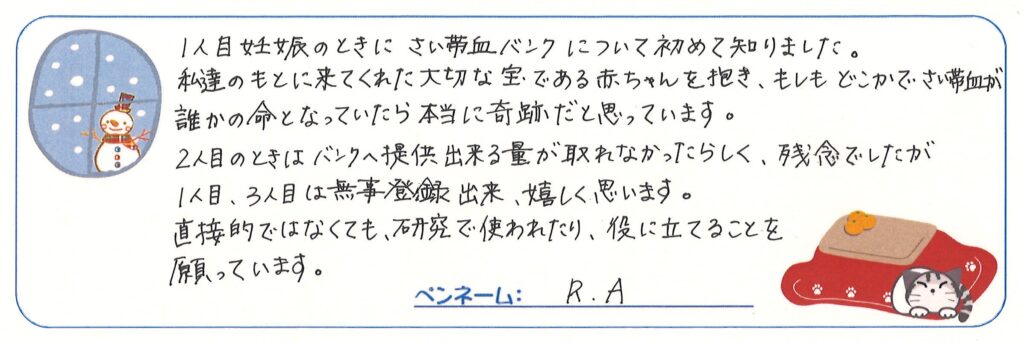 1人目妊娠のときに さい帯血バンク について初めて知りました。
私達のもとに来てくれた大切な宝である赤ちゃんを抱き、もしも どこかで さい帯血が
誰かの命となっていたら本当に奇跡だと思っています。
2人目のときは バンクへ提供出来る量が取れなかったらしく、残念でしたが
1人目、3人目は無事登録出来、嬉しく思います。
直接的ではなくても、研究で使われたり、役に立てることを
願っています。
ペンネーム: R.A